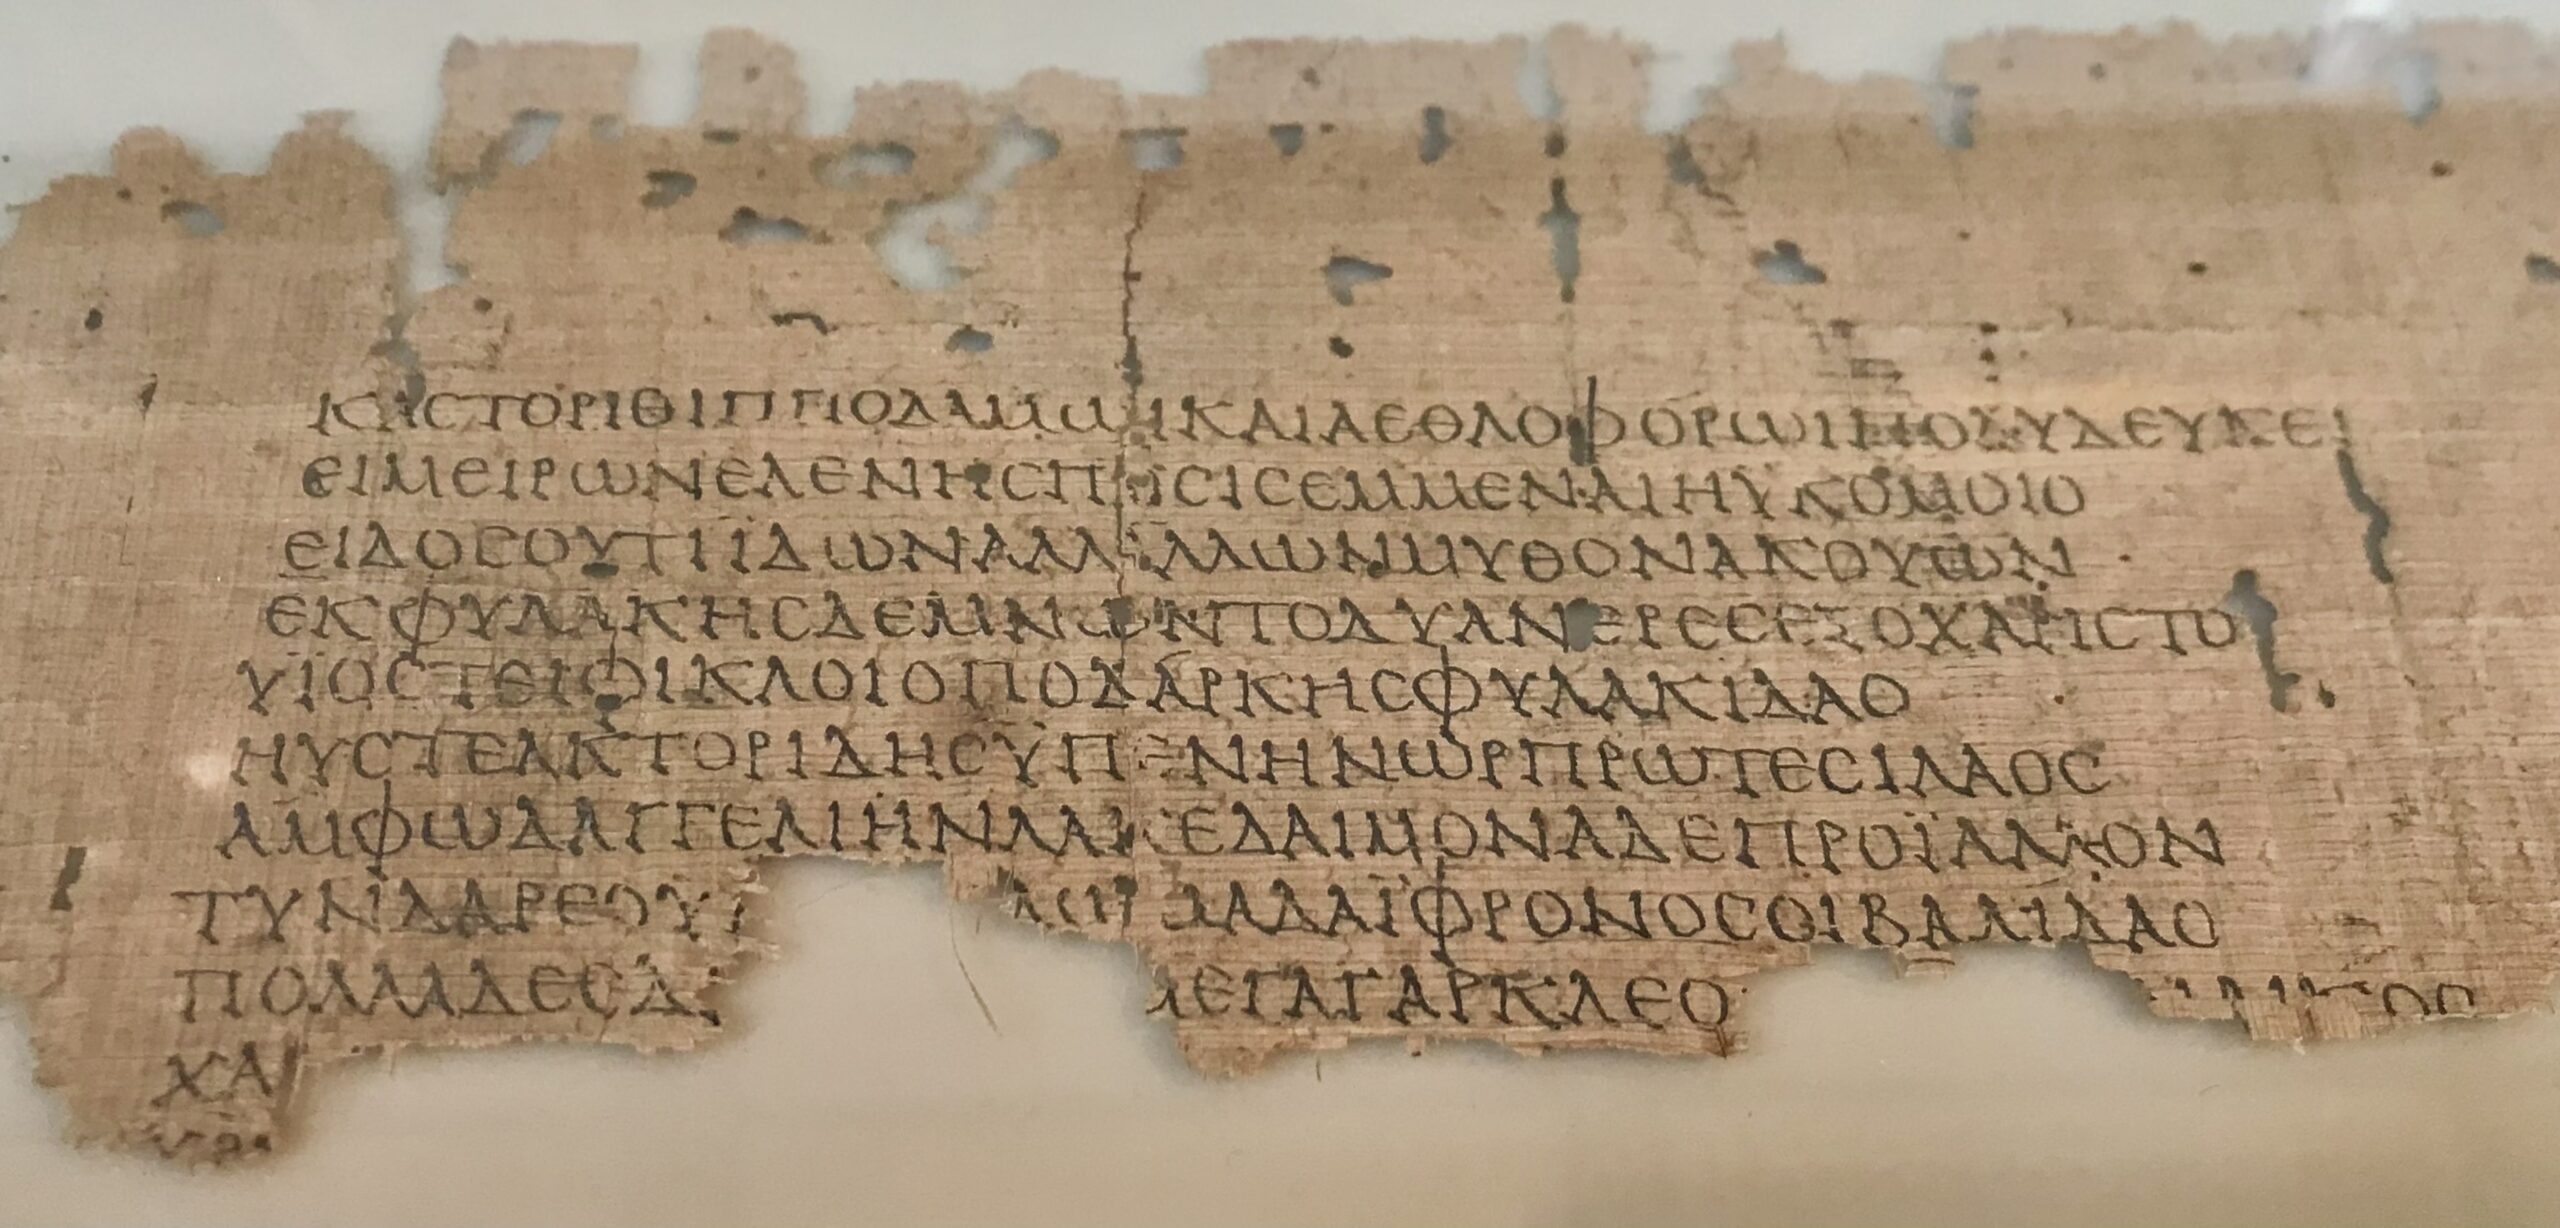 ΚΑϹΤΟΡΙΘΙΠΠΟΔΑΜΩΙΚΑΙΑΕΘΛΟΦΟΡΩΙΠΟΛΥΔΕΥΚΕΙ
ΕΙΜΕΙΡΩΝΕΛΕΝΗϹΠΟϹΙϹΕΜΜΕΝΑΙΗΥΚΟΜΟΙΟ
ΕΙΔΟϹΟΥΤΙΪΔΩΝΑΛΛΑΛΛΩΝΜΥΘΟΝΑΚΟΥΩΝ
ΕΚΦΥΛΑΚΗϹΔΕΜΝΩΝΤΟΔΥΑΝΕΡΕϹΕΞΟΧΑΡΙϹΤΟ
ΥΪΟϹΤΕΙΦΙΚΛΟΙΟΠΟΔΑΡΚΗϹΦΥΛΑΚΙΔΑΟ
ΗΥϹΤΕΑΚΤΟΡΙΔΗϹΫΠΕΝΗΝΩΡΠΡΩΤΕϹΙΛΑΟϹ
ΑΜΦΩΔΑΓΓΕΛΙΗΝΛΑΚΕΔΑΙΜΟΝΑΔΕΠΡΟΪΑΛΛΟΝ
ΤΥΝΔΑΡΕΟΥ ΜΑΔΑΪΦΡΟΝΟϹΟΙΒΑΛΙΔΑΟ
ΠΟΛΛΑΔΕΕΔ ΜΕΓΑΓΑΡΚΛΕΟ
ΧΑ